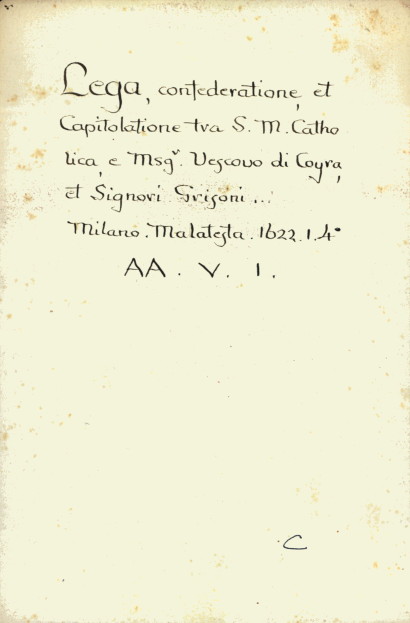 Lega, confederatione, et
Capitolatione tra S. M. Catho
lica, e Msgr. Vescovo di Coyra,
et Signori Grisoni...
Milano. Malatesta. 1622. 1. 4°
AA. V. 1.
C